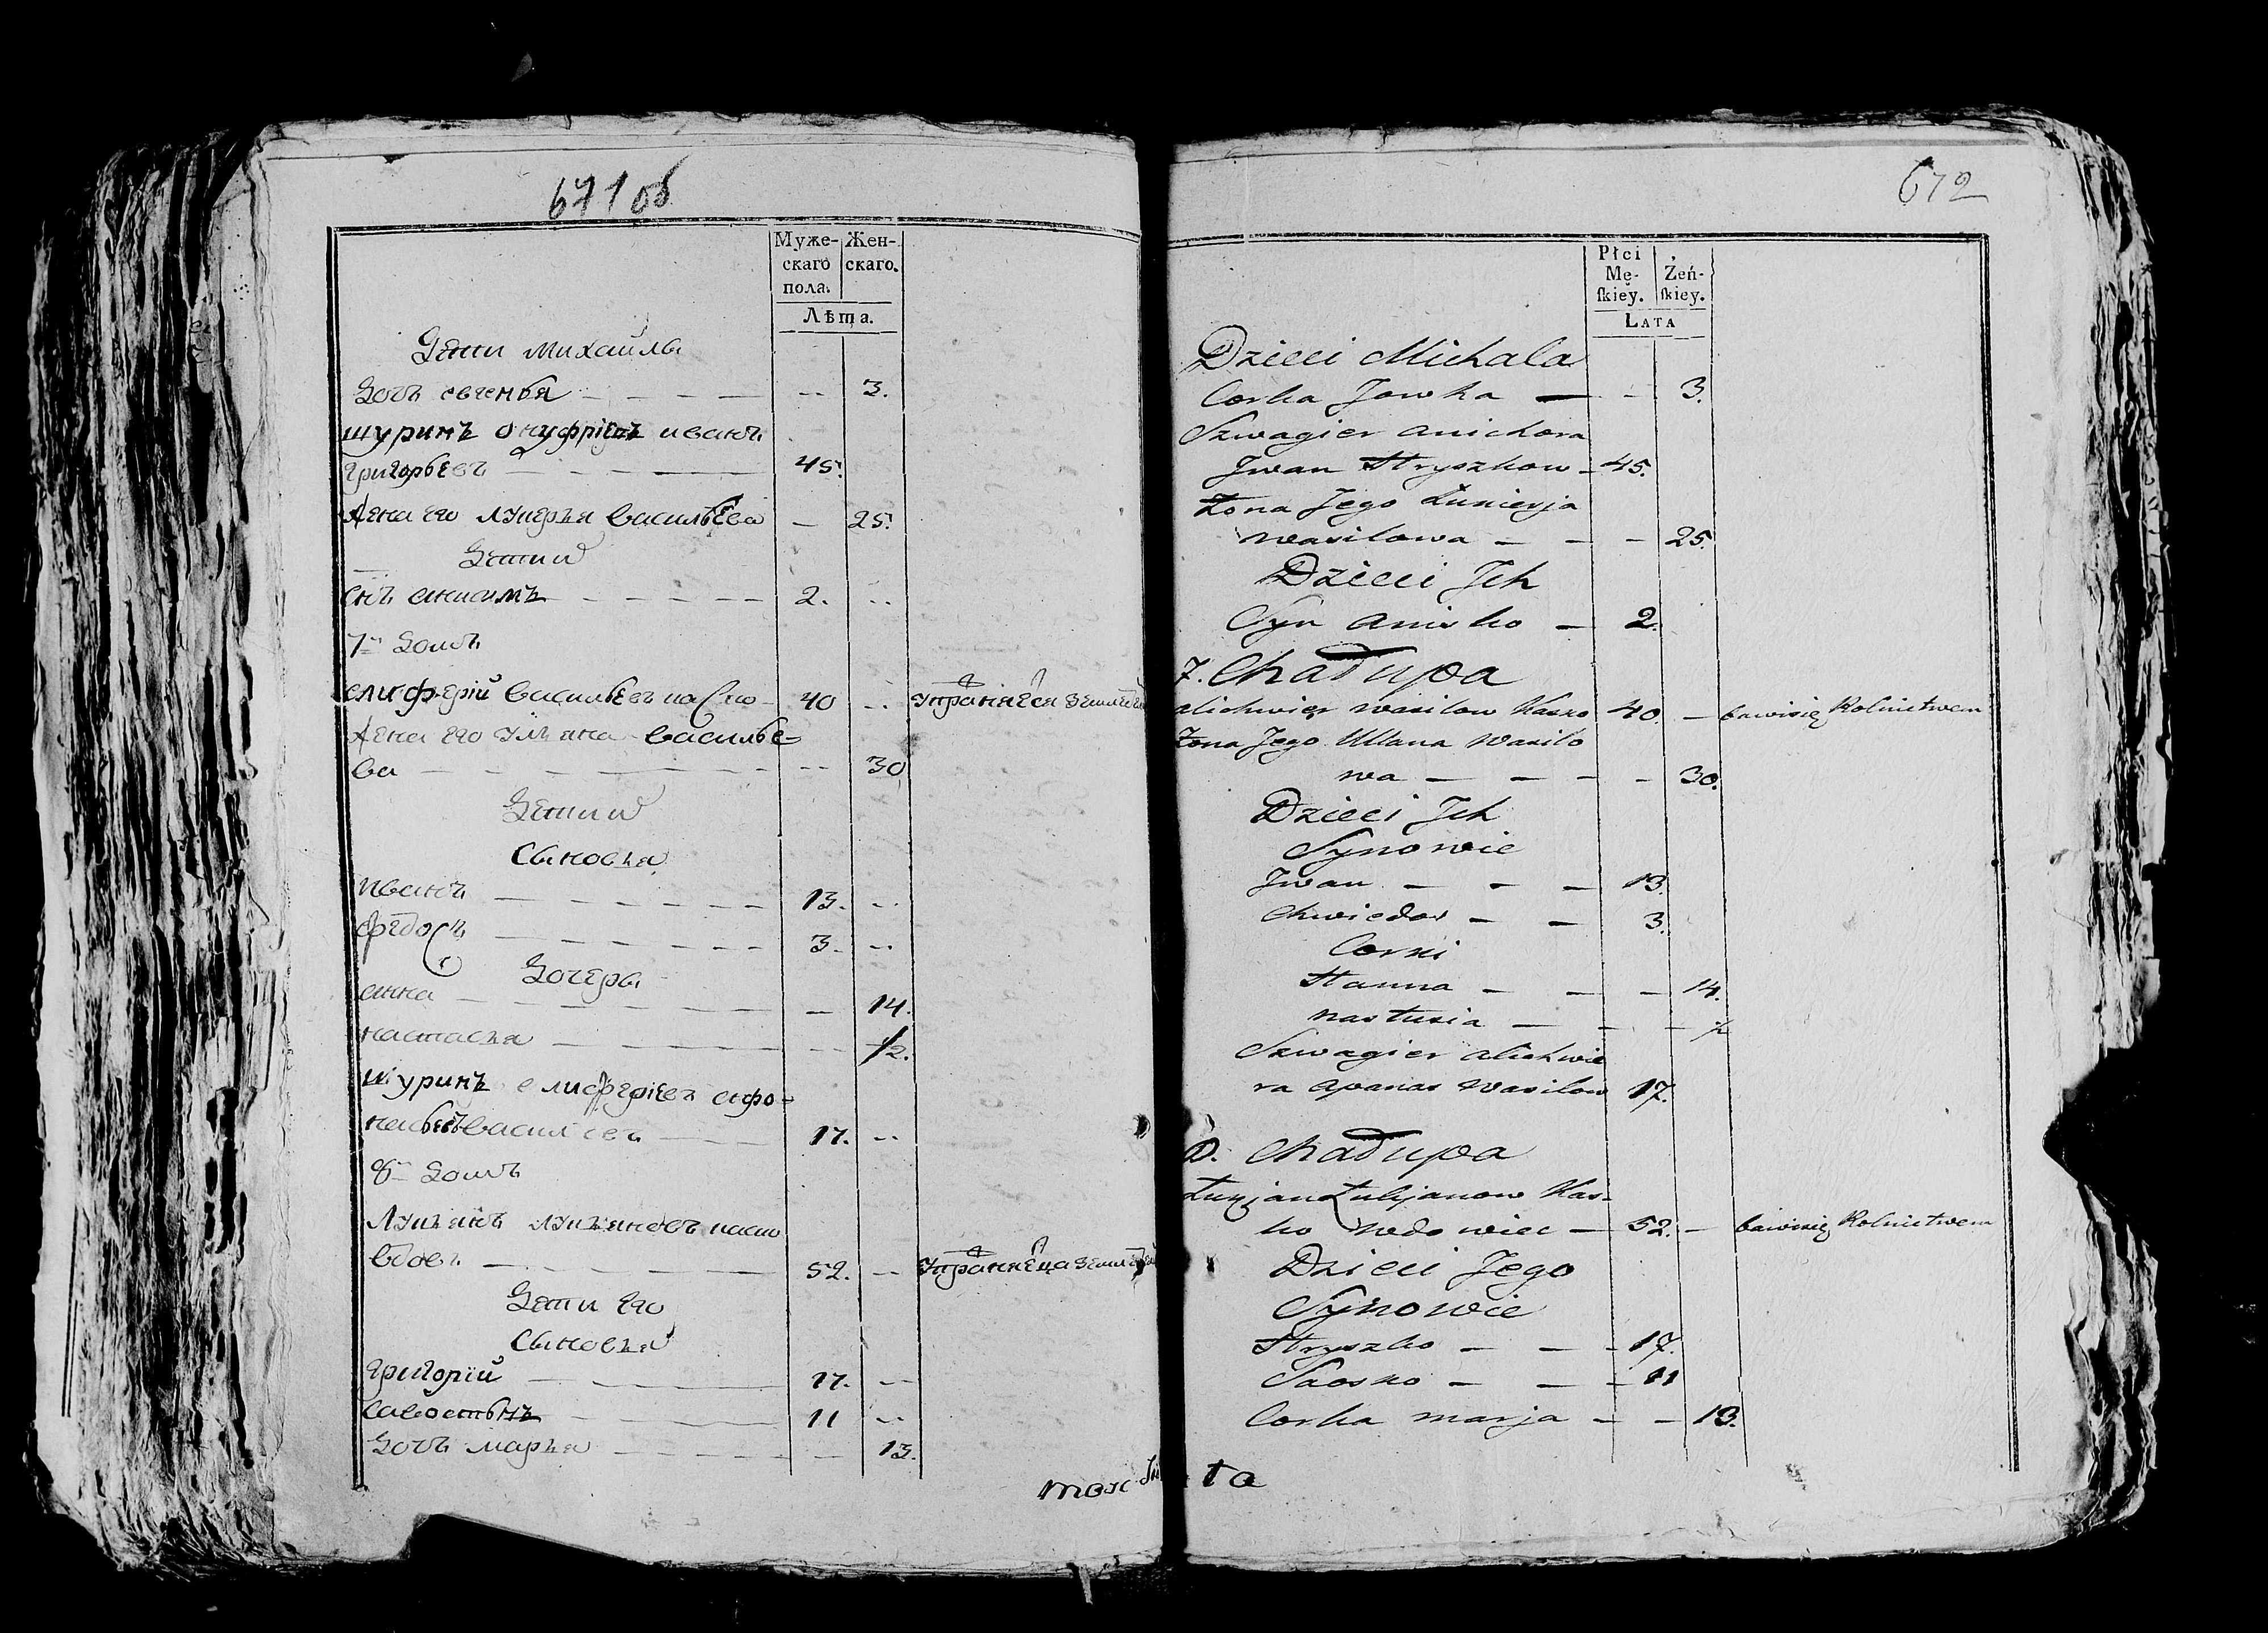 671 об
Муже-
скаго
пола.
Жен-
скаго.
Лѣта.
Дѣти Михаилы
Дочь евгенья — 3.
шуринъ онуфріевъ иванъ
григорьевъ — 45.
Жена его лукерья васильева — 25.
Дети
снъ анисимъ — 2.
7й домъ
елиферій васильевъ 40 — упражняеся
Жена его ульяна василье-
ва — 30
Дети
Сыновья
иванъ — 13.
федосъ — 3.
Дочери
анна — 14.
настасья — 1/2.
шуринъ елиферіевъ афо-
насьевъ васильевъ — 17.
8й домъ
Лукьянъ лукьяновъ
вдовъ — 52. — упражняеца
Дети его
Сыновья
григорій — 17.
савостьянъ 11
Дочь марья — 13.
672
Płci
Mę-
ſkiey.
Żeń-
ſkiey.
Lata
Dzieci Michala
Corka Jowka — 3.
Szwagier
Jwan Hryszkow — 45.
Żona Jego Łukierja
wasilowa — 25.
Dzieci Jch
Syn Anisko — 2.
7. Chałupa
alichwier wasilow Kasko 40. — bawi się Rolnictwem
Żona Jego Ullana Wasilo
wa — 30.
Dzieci Jch
Synowie
Jwan — 13.
Chwiedos — 3.
Corki
Hanna — 14.
nastusia — ½
Szwagier alichwie
ra apanas Wasilow 17.
8. Chałupa
Łukjan Łukjanow Kas-
ko wdowiec — 52. — bawi się Rolnictwem
Dzieci Jego
Synowie
Hryszko — 17.
11
Corka marja — 13.